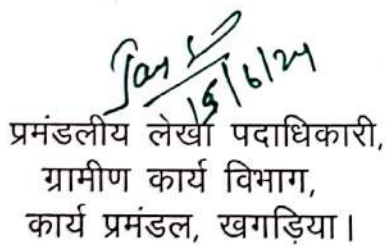 15/6/24
प्रमंडलीय लेखा पदाधिकारी,
ग्रामीण कार्य विभाग,
कार्य प्रमंडल, खगड़िया।